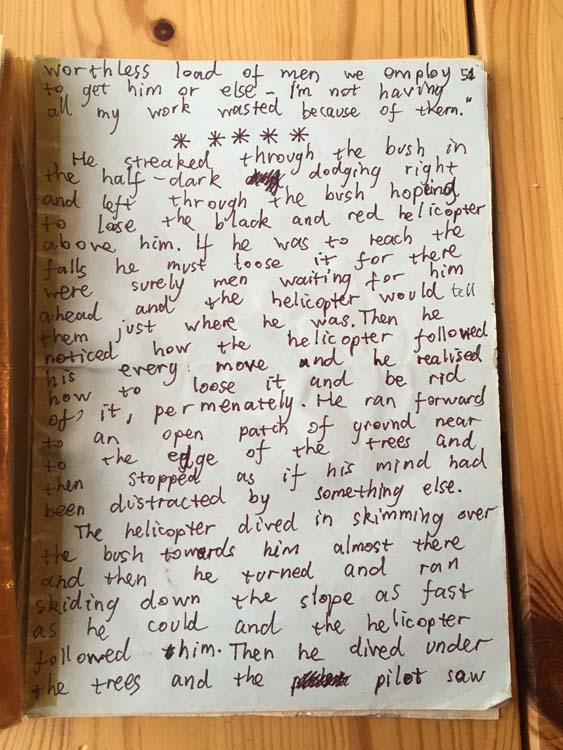 worthless load of men we employ 51
to get him or else - I'm not having
all my work wasted because of them."
* * * * *
He streaked through the bush in
the half-dark dodging right
and left through the bush hopeing
to lose the black and red helicopter
above him. If he was to reach the
falls he must loose it for there
were surely men waiting for him
ahead and the helicopter would tell
them just where he was. Then he
noticed how the helicopter followed
his every move and he realised
how to loose it and be rid
of, it, permenately. He ran forward
to an open patch of ground near
to the edge of the trees and
then stopped as if his mind had
been distracted by something else.
The helicopter dived in skimming over
the bush towards him almost there
and then he turned and ran
skiding down the slope as fast
as he could and the helicopter
followed him. Then he dived under
the trees and the pilot saw